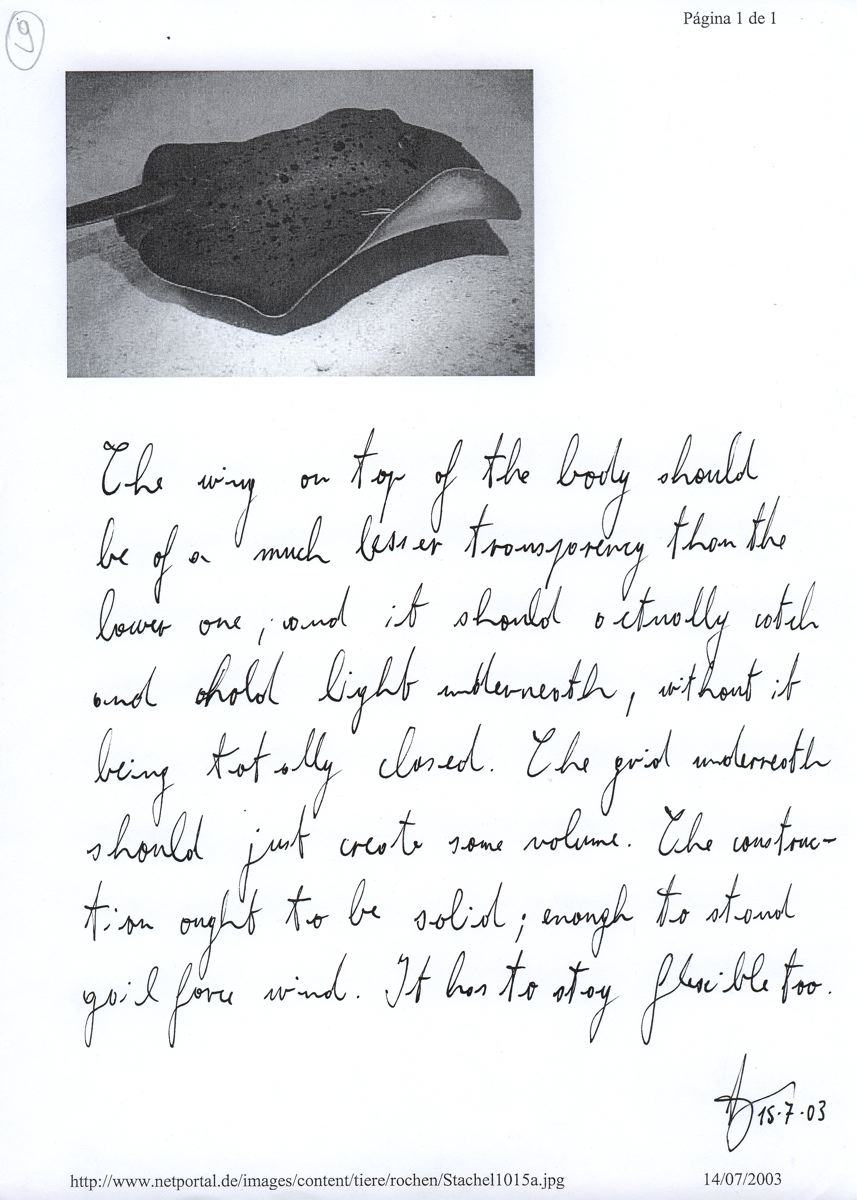 9
Página 1 de 1
The wing on top of the body should
be of a much lesser transparency than the
lower one, and it should actually catch
and hold light underneath, without it
being totally closed. The grid underneath
should just create some volume. The construc-
tion ought to be solid; enough to stand
gail force wind. It has to stay flexible too.
15.7.03
http://www.netportal.de/images/content/tiere/rochen/Stachel1015a.jpg 14/07/2003